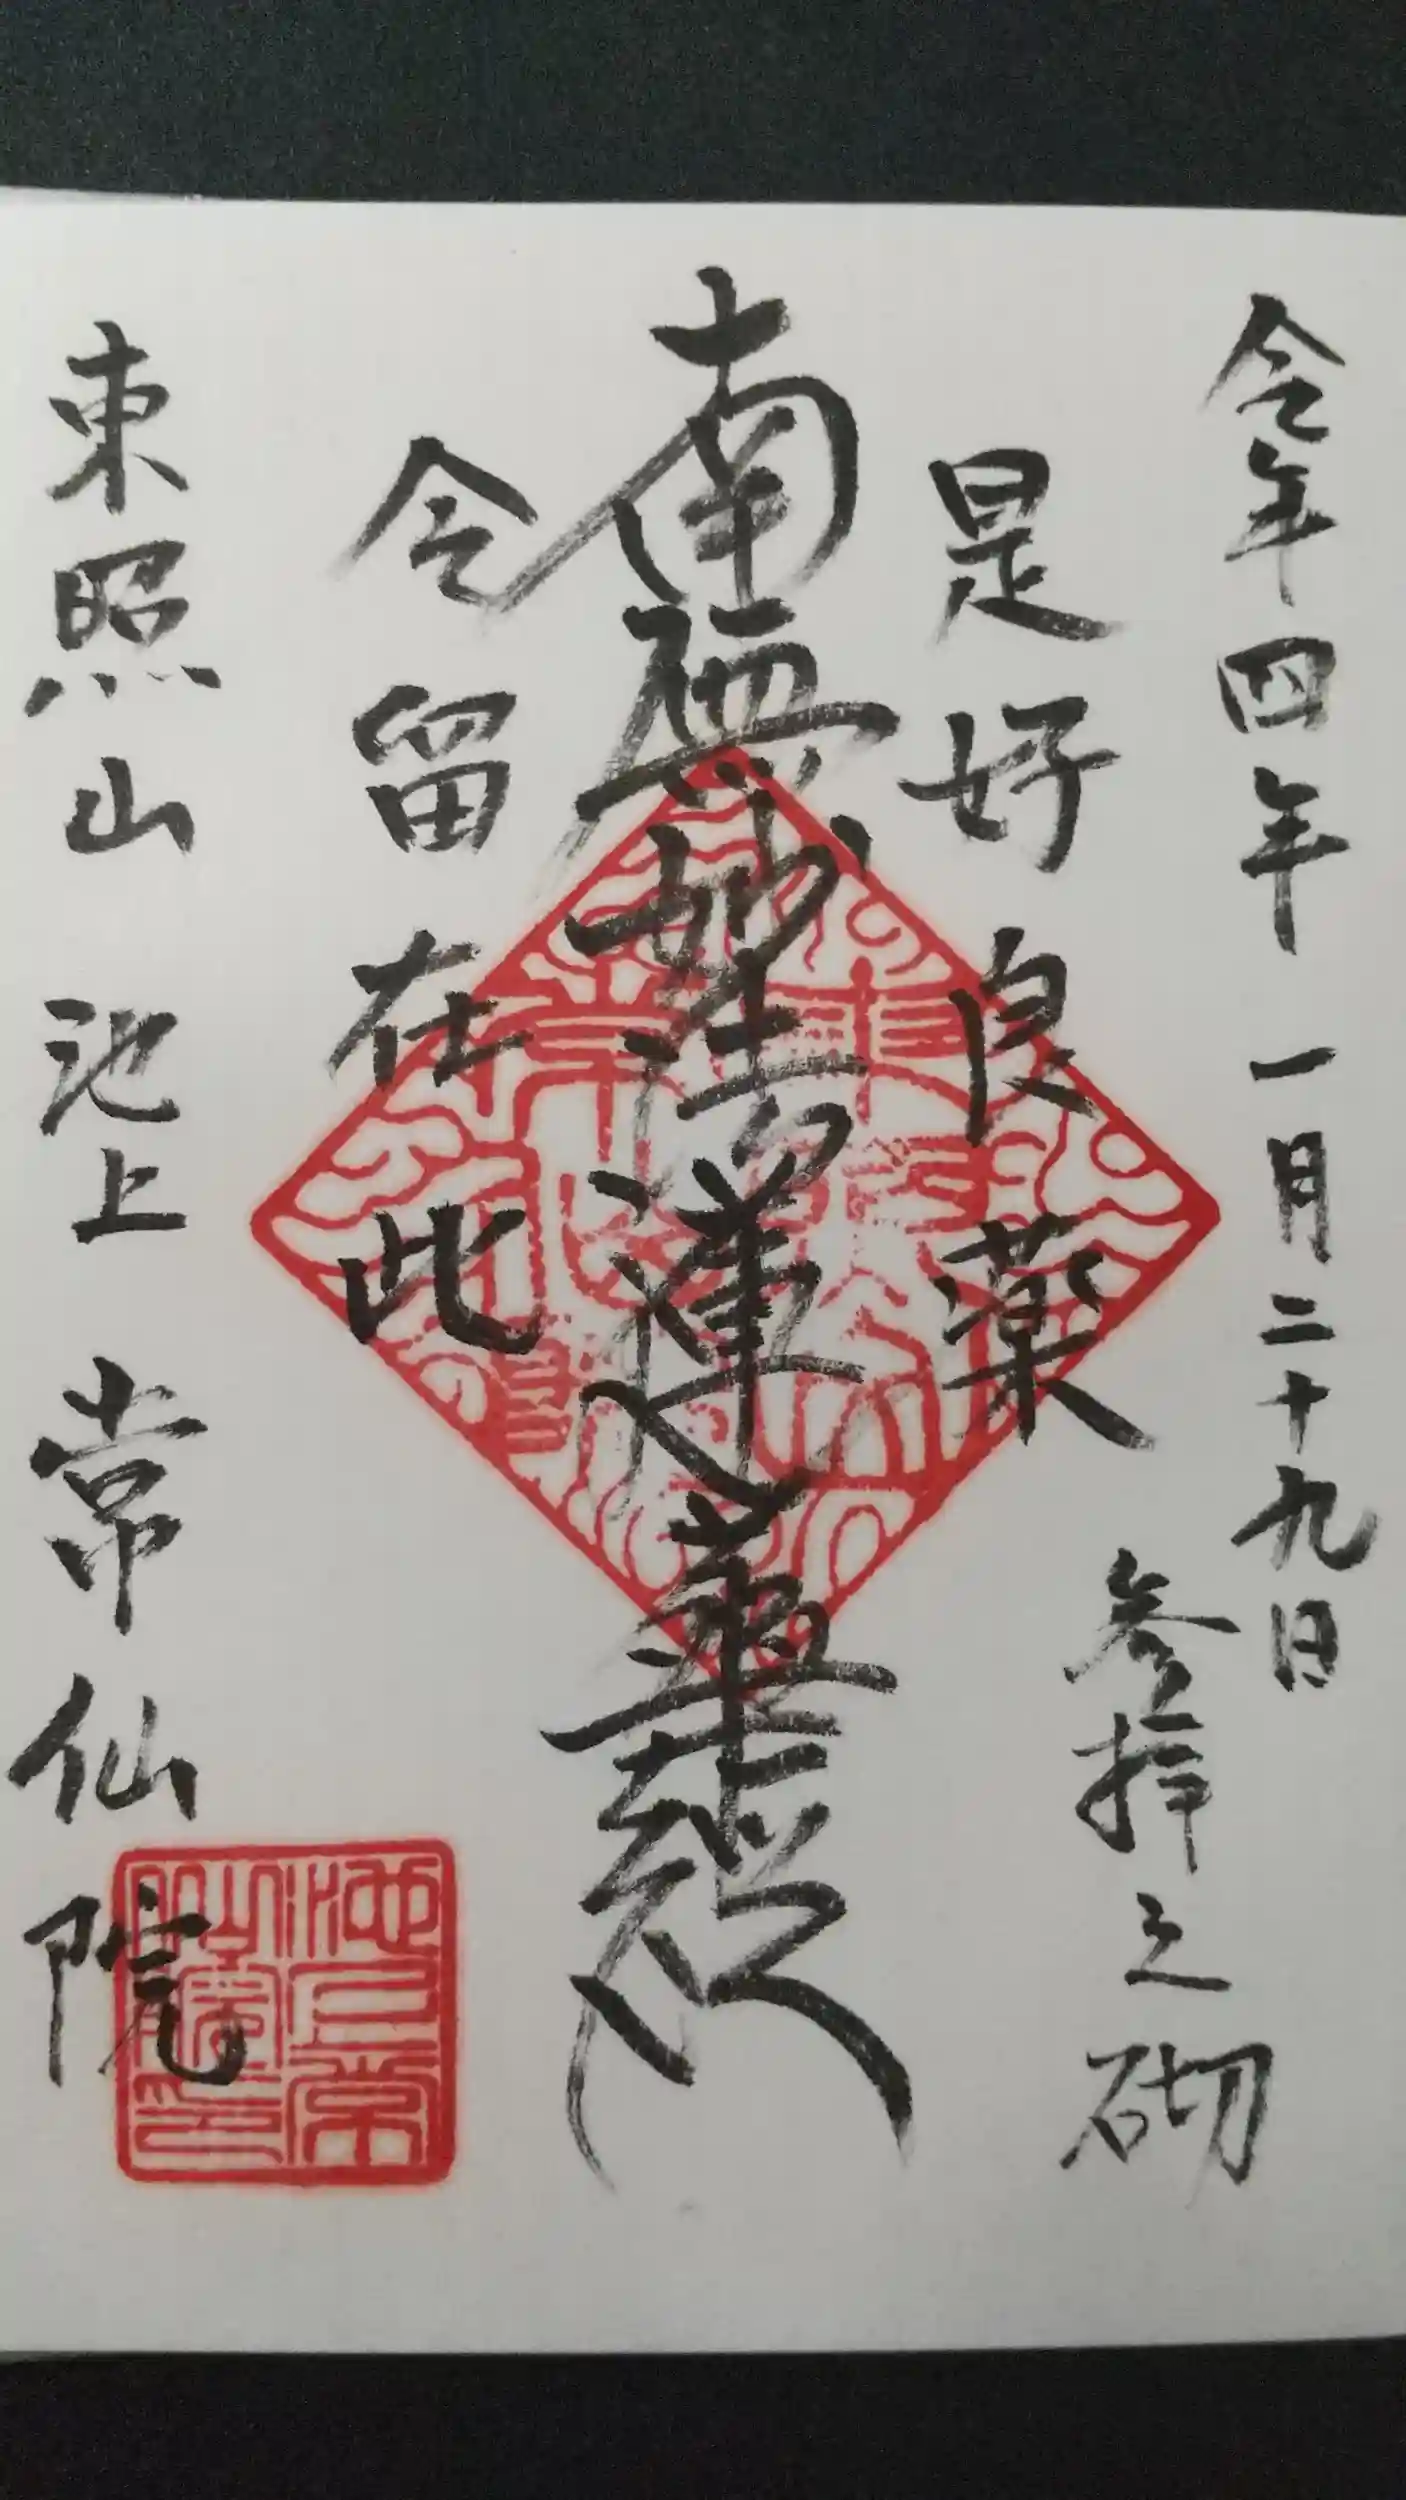 令年四年一月二十九日
参拝之砌
是好良薬
南無妙法蓮華経
今留在此
東照山 池上 常仙院
池上常
仙院印